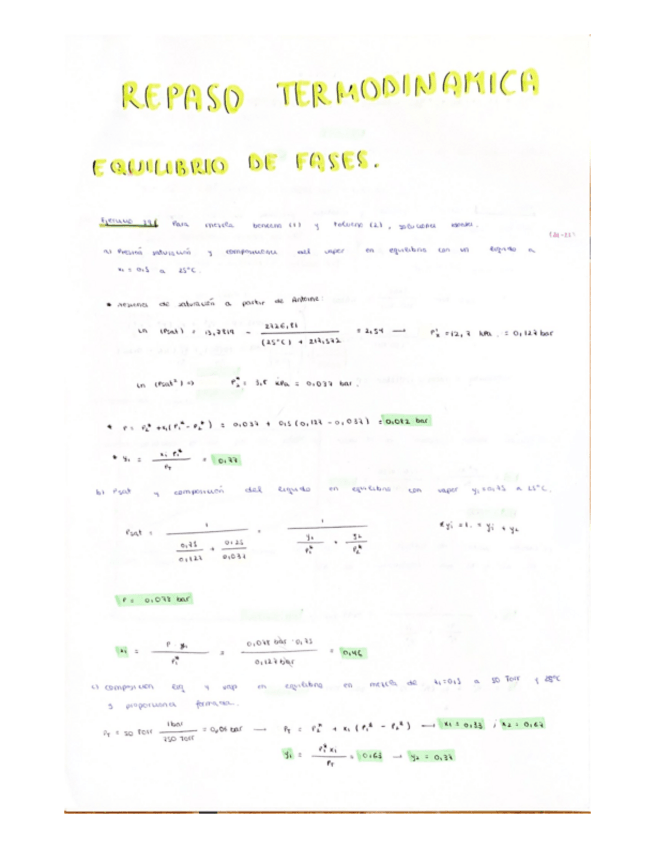 REPASO TERMODINAMICA
EQUILIBRIO DE FASES.
Para mezcla benceno (1) y tolueno (2),
a) Presión saturación y composición del vapor en equilibrio con un líquido a
x₁ = 0,5 a 25°C.
• Presión de saturación a partir de Antoine:
ln (Psat) = 13,7819 - 2726,81 / ((25°C) + 217,572) = 2,54 → = 12,7 kPa. = 0,127 bar
ln (Psat²) => P₂* = 3,8 kPa = 0,037 bar.
• P = P₂* + x₁(P₁* - P₂*) = 0,037 + 0,5 (0,127 - 0,037) = 0,082 bar
• y₁ = x₁ P₁* / PT = 0,77
b) Psat y composición del líquido en equilibrio con vapor y₁=0,75 a 25°C.
Psat = 1 / (0,75/0,127 + 0,25/0,037) = 1 / (y₁/P₁* + y₂/P₂*) = 1. = y₁ + y₂
P = 0,078 bar
x₁ = P y₁ / P₁* = 0,078 bar · 0,75 / 0,127 bar = 0,46
c) composición liq y vap en equilibrio en mezcla de a 50 Torr y 25°C
y proporciones formadas.
PT = 50 Torr 1bar / 750 Torr = → PT = P₂* + x₁ (P₁* - P₂*) → x₁ = 0,33 ; x₂ = 0,67
y₁ = P₁* x₁ / PT = 0,63 → y₂ = 0,37